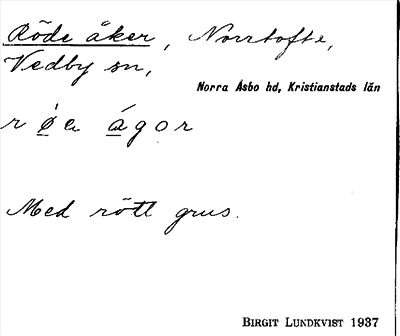 Röde åker, Norrtofte,
Vedby sn,
Norra Åsbo hd, Kristianstads län
Med rött grus.
BIRGIT LUNDKVIST 1937